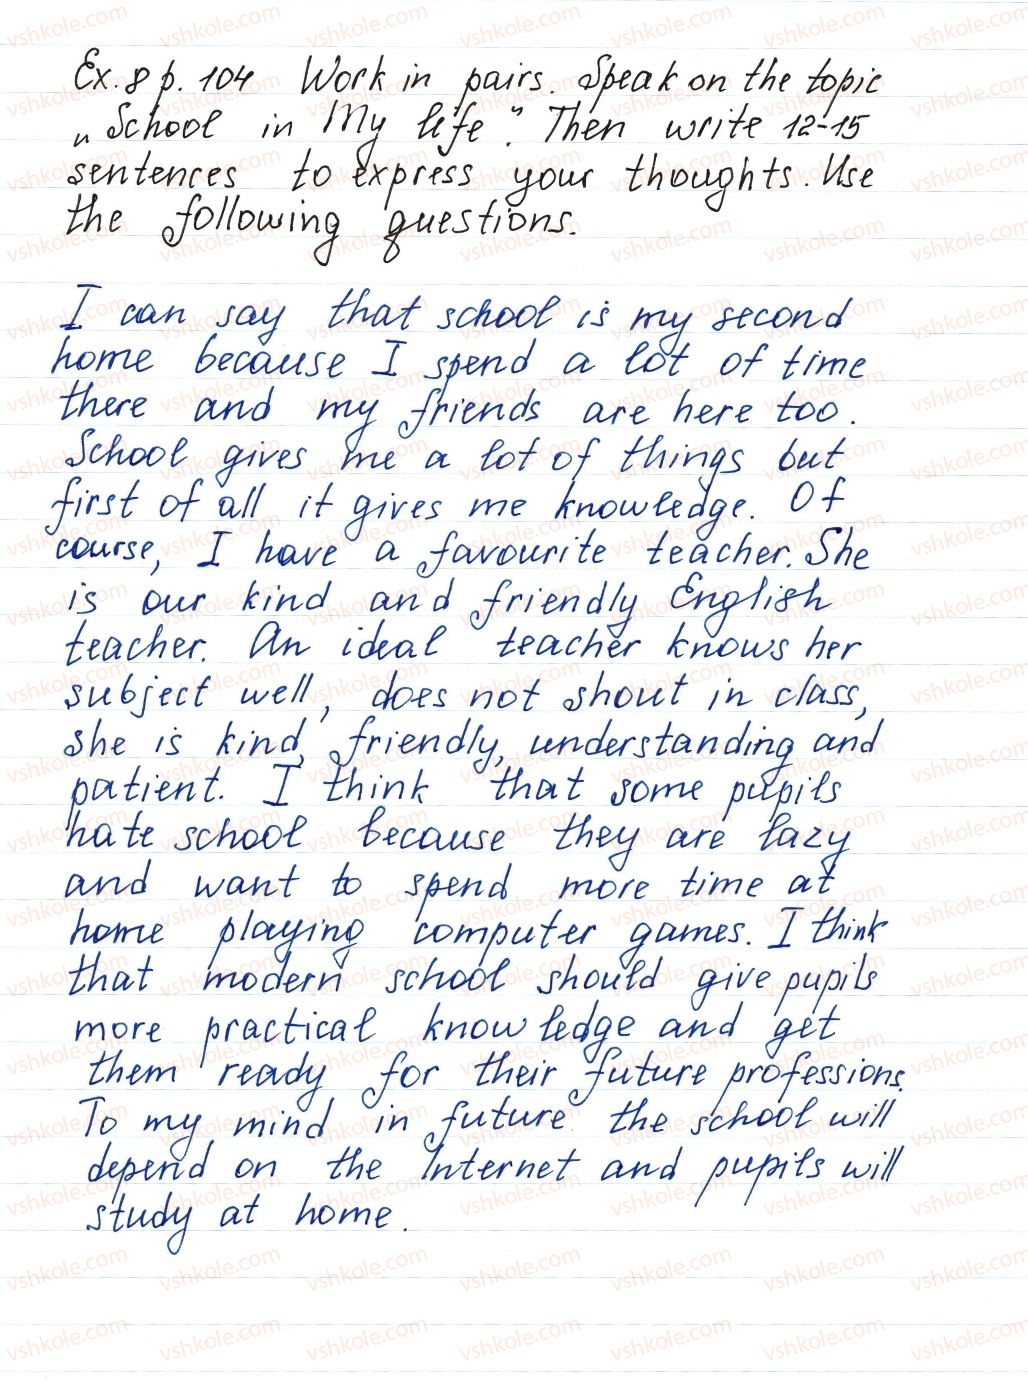 Ex. 8 p. 104 Work in pairs. Speak on the topic
„School in My life". Then write 12-15
sentences to express your thoughts. Use
the following questions.
I can say that school is my second
home because I spend a lot of time
there and my friends are here too.
School gives me a lot of things but
first of all it gives me knowledge. Of
course, I have a favourite teacher. She
is our kind and friendly English
teacher. An ideal teacher knows her
subject well, does not shout in class,
she is kind, friendly, understanding and
patient. I think that some pupils
hate school because they are lazy
and want to spend more time at
home playing computer games. I think
that modern school should give pupils
more practical knowledge and get
them ready for their future professions.
To my mind in future the school will
depend on the Internet and pupils will
study at home.